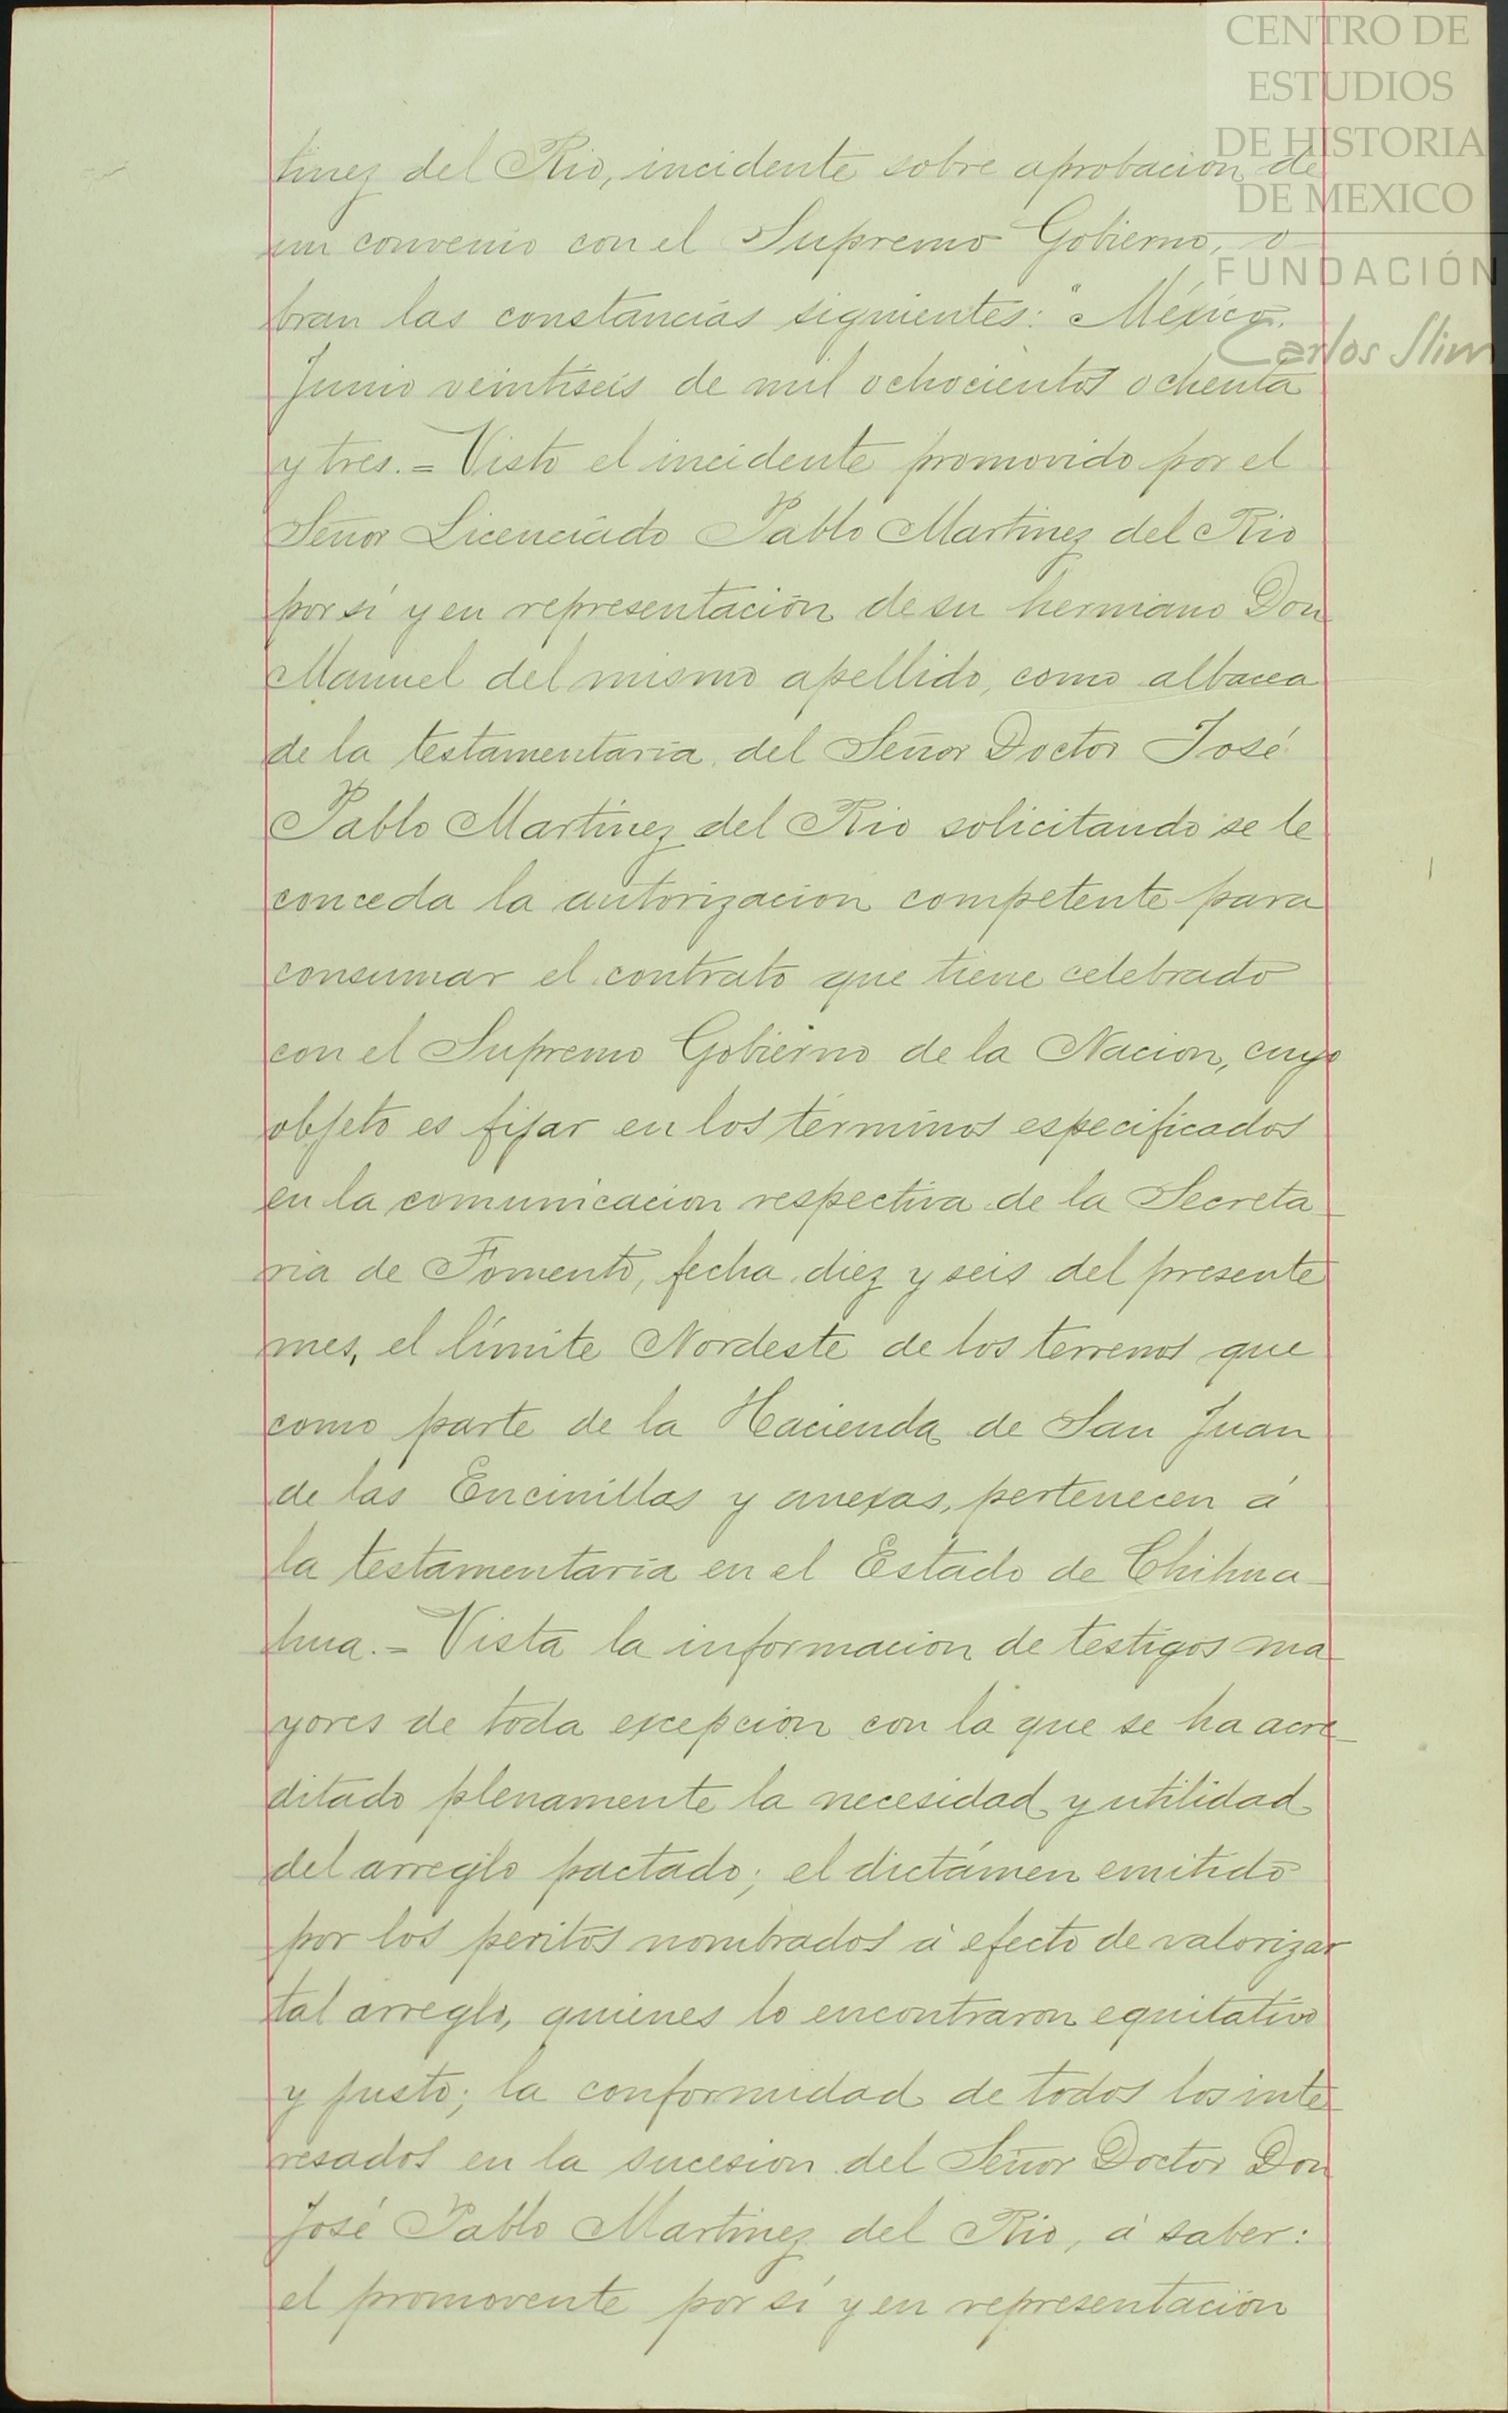 CENTRO DE
ESTUDIOS
DE HISTORIA
DE MEXICO
FUNDACIÓN
Carlos Slim
tinez del Rio, incidente sobre aprobacion de
un convenio con el Supremo Gobierno, o
bran las constancias siguientes: "México,
Junio veintiseis de mil ochocientos ochenta
y tres. = Visto el incidente promovido por el
Señor Licenciado Pablo Martinez del Rio
por sí y en representación de su hermano Don
Manuel del mismo apellido, como albacea
de la testamentaría del Señor Doctor José
Pablo Martinez del Rio solicitando se le
conceda la autorizacion competente para
consumar el contrato que tiene celebrado
con el Supremo Gobierno de la Nacion, cuyo
objeto es fijar en los términos especificados
en la comunicacion respectiva de la Secreta
ria de Fomento, fecha diez y seis del presente
mes, el límite Nordeste de los terrenos que
como parte de la Hacienda de San Juan
de las Encinillas y anexas, pertenecen á
la testamentaría en el Estado de Chihua_
hua. = Vista la informacion de testigos ma_
yores de toda excepción con la que se ha acre_
ditado plenamente la necesidad y utilidad
del arreglo pactado; el dictámen emitido
por los peritos nombrados á efecto de valorizar
tal arreglo, quienes lo encontraron equitativo
y justo; la conformidad de todos los inte_
resados en la sucesion del Señor Doctor Don
José Pablo Martinez del Rio, á saber:
el promovente por sí y en representación